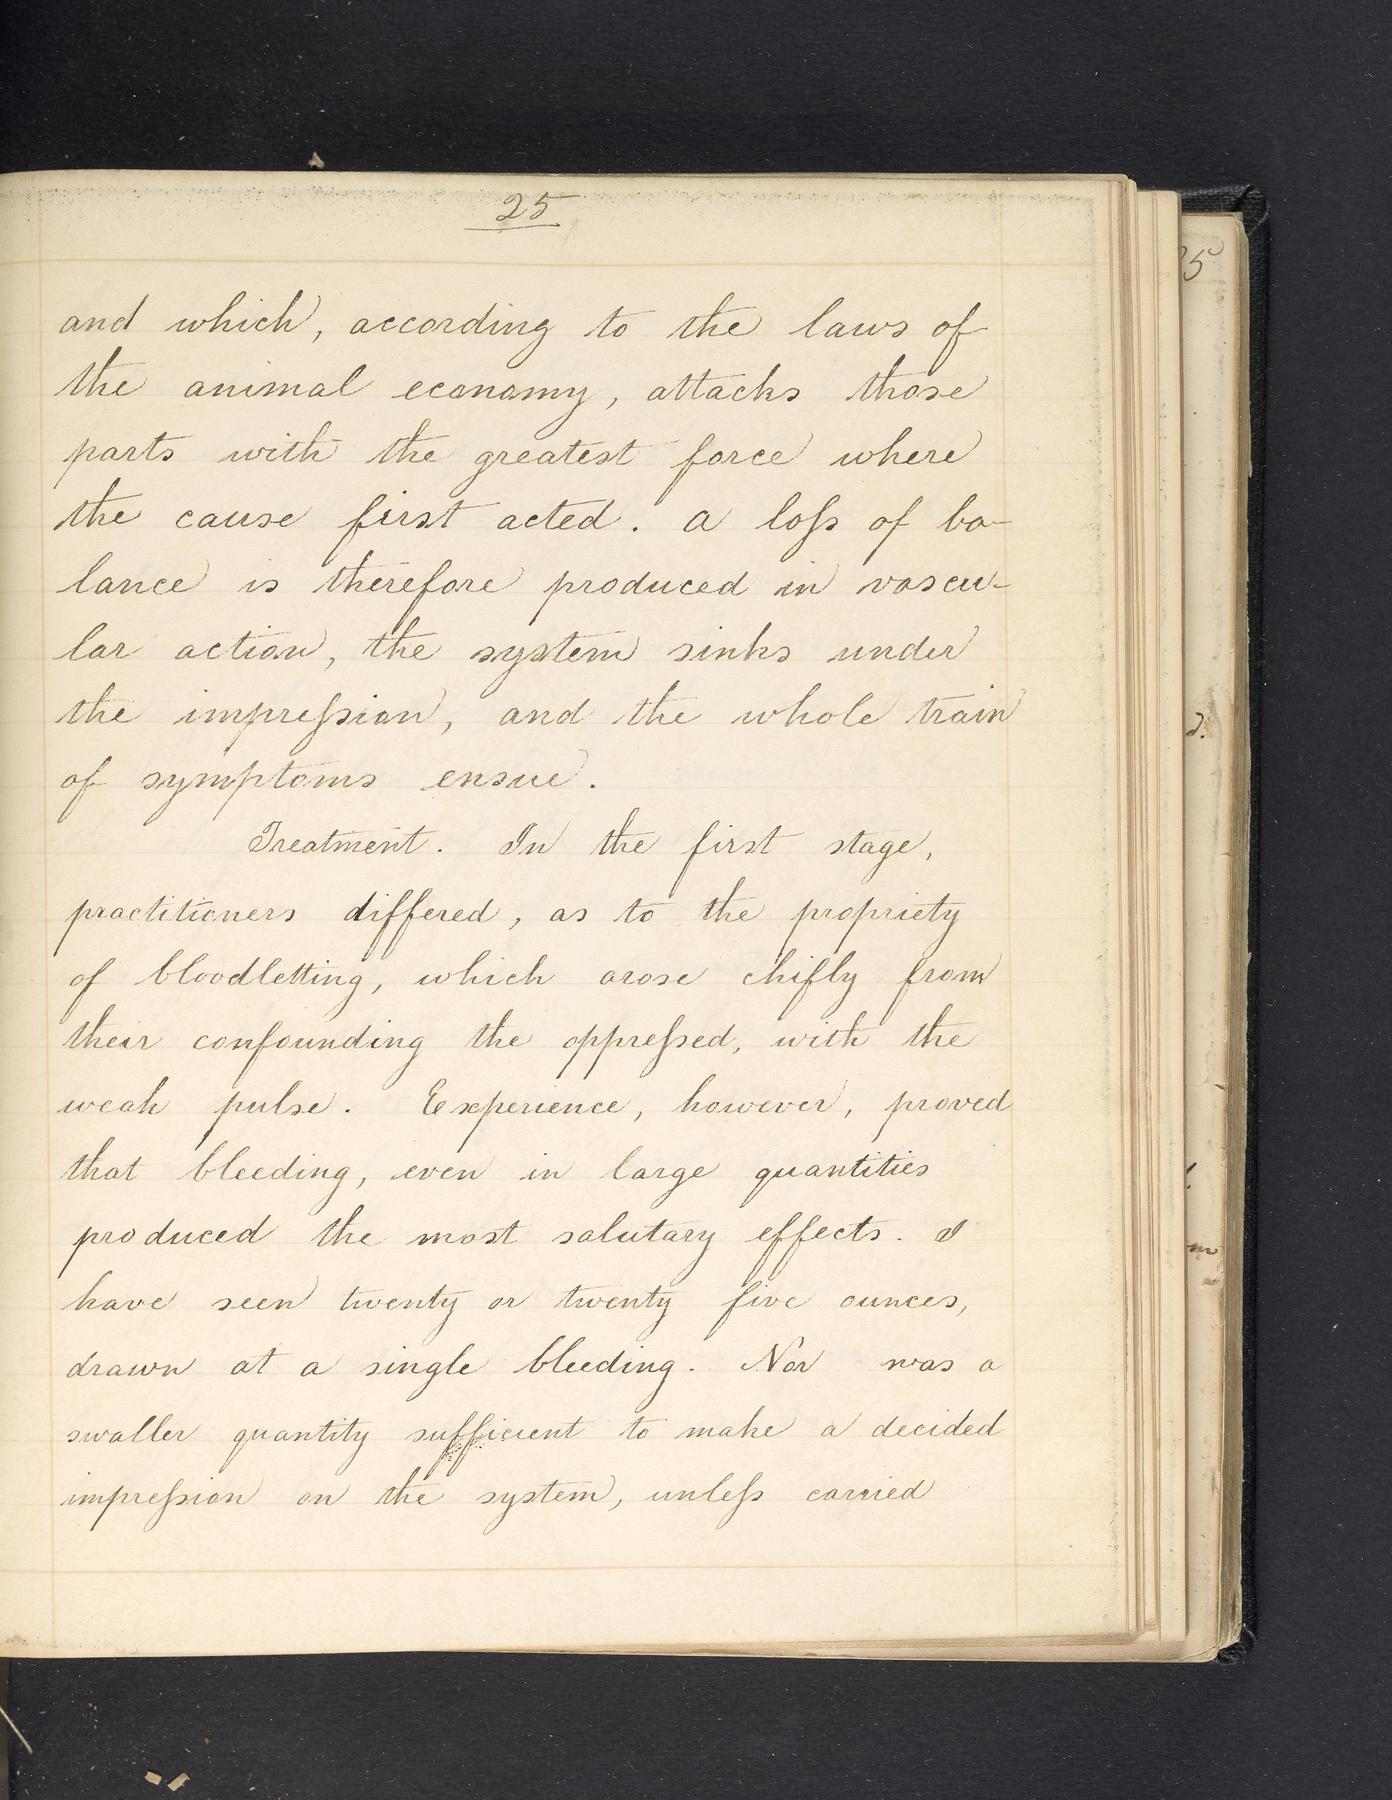 25
and which, according to the laws of
the animal economy, attacks those
parts with the greatest force where
the cause first acted. a loſs of ba-
lance is therefore produced in vascu-
lar action, the system sinks under
the impreſsion, and the whole train
of symptoms ensue.
Treatment. In the first stage,
practitioners differed, as to the propriety
of bloodletting, which arose chifly from
their confounding the oppreſsed, with the
weak pulse. Experience, however, proved
that bleeding, even in large quantities
produced the most salutary effects. I
have seen twenty or twenty five ounces,
drawn at a single bleeding. Nor was a
swaller quantity sufficient to make a decided
impreſsion on the system, unleſs carried